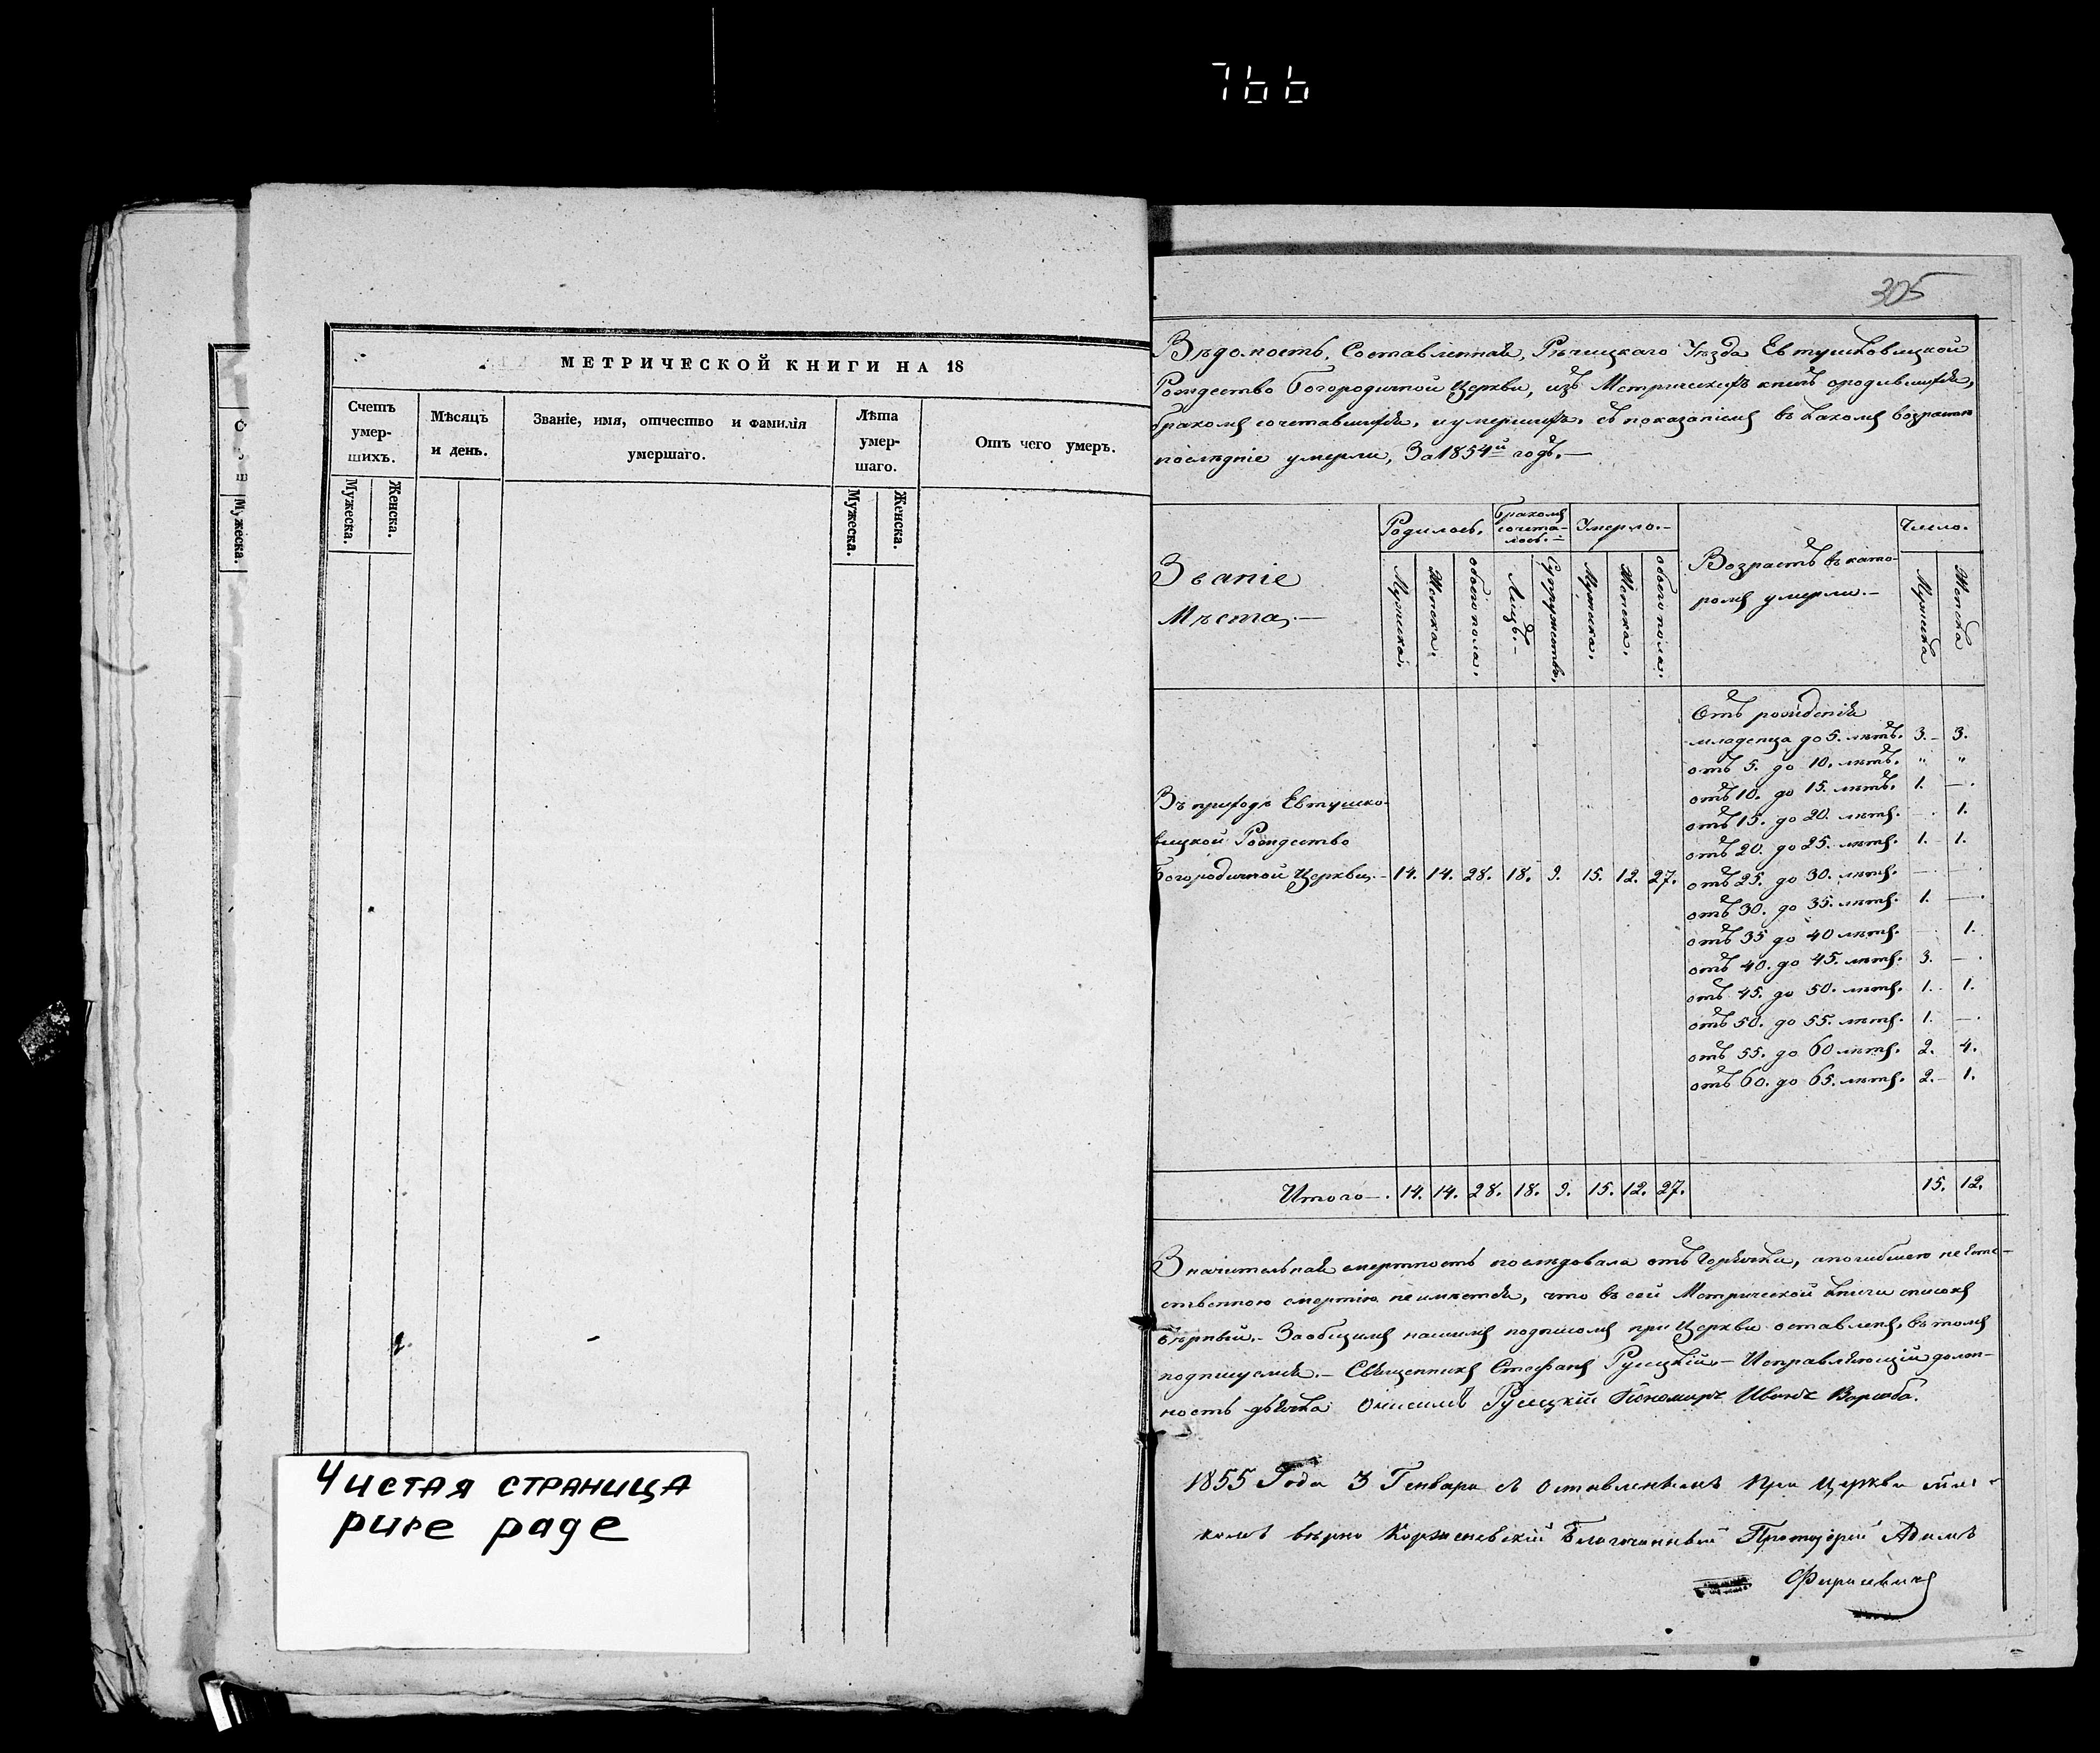 766
МЕТРИЧЕСКОЙ КНИГИ НА 18
Счетъ умер-шихъ.
Мѣсяцъ и день.
Званіе, имя, отчество и фамилія умершаго.
Лѣта умер-шаго.
Отъ чего умеръ.
Мужеска.
Женска.
Мужеска.
Женска.
Мужеска.
Чистая страница
pure page
305
Вѣдомость, Составленная, Рѣчицкаго Уѣзда Евтушковицкой
Рождество Богородичной Церкви, изъ Метрическихъ книгъ ородившихся,
бракомъ сочетавшихся, и умершихъ, съ показаніемъ въ какомъ возрастѣ
послѣдніе умерли, За 1854й годъ.—
Званіе
Мѣста,—
Родилось.
Бракомъ
сочета-
лось.—
Умерло.—
Возрастъ въ кото-
ромъ умерли.—
Число.
Мужеска.
Женска.
обоего пола.
Лицъ.—
Супружествъ.
Мужеска.
Женска.
обоего пола.
Мужеска
Женска
Отъ рожденія
младенца до 5. лѣтъ. 3.— 3.
отъ 5. до 10. лѣтъ. „ „
отъ 10. до 15. лѣтъ. 1. —.
отъ 15. до 20. лѣтъ. —. 1.
отъ 20. до 25. лѣтъ. 1. 1.
Въ приходѣ Евтушко-
вицкой Рождество
Богородичной Церкви.— 14. 14. 28. 18. 9. 15. 12. 27.
отъ 25. до 30. лѣтъ. — —
отъ 30. до 35. лѣтъ. 1. —.
отъ 35 до 40 лѣтъ. — 1.
отъ 40. до 45. лѣтъ. 3. —.
отъ 45. до 50. лѣтъ. 1. 1.
отъ 50. до 55. лѣтъ. 1. —.
отъ 55. до 60 лѣтъ. 2. 4.
отъ 60. до 65. лѣтъ. 2.— 1.
Итого—. 14. 14. 28. 18. 9. 15. 12. 27. 15. 12.
Значительная смертность послѣдовала отъ Горячки, а погибшею неесте-
ственною смертію неимѣется, что въ сей Метрической книги списокъ
вѣрный.— Заобщимъ нашимъ подписомъ при Церкви оставленъ, въ томъ
подписуемся.— Священникъ Стефанъ Русецкій.— Исправляющій долж-
ность дьячка Онисимъ Русецкій Пономарь Иванъ
1855 Года 3 Генваря съ оставленнымъ при Церкви
вѣрно Благочинный Протоіерей Адамъ